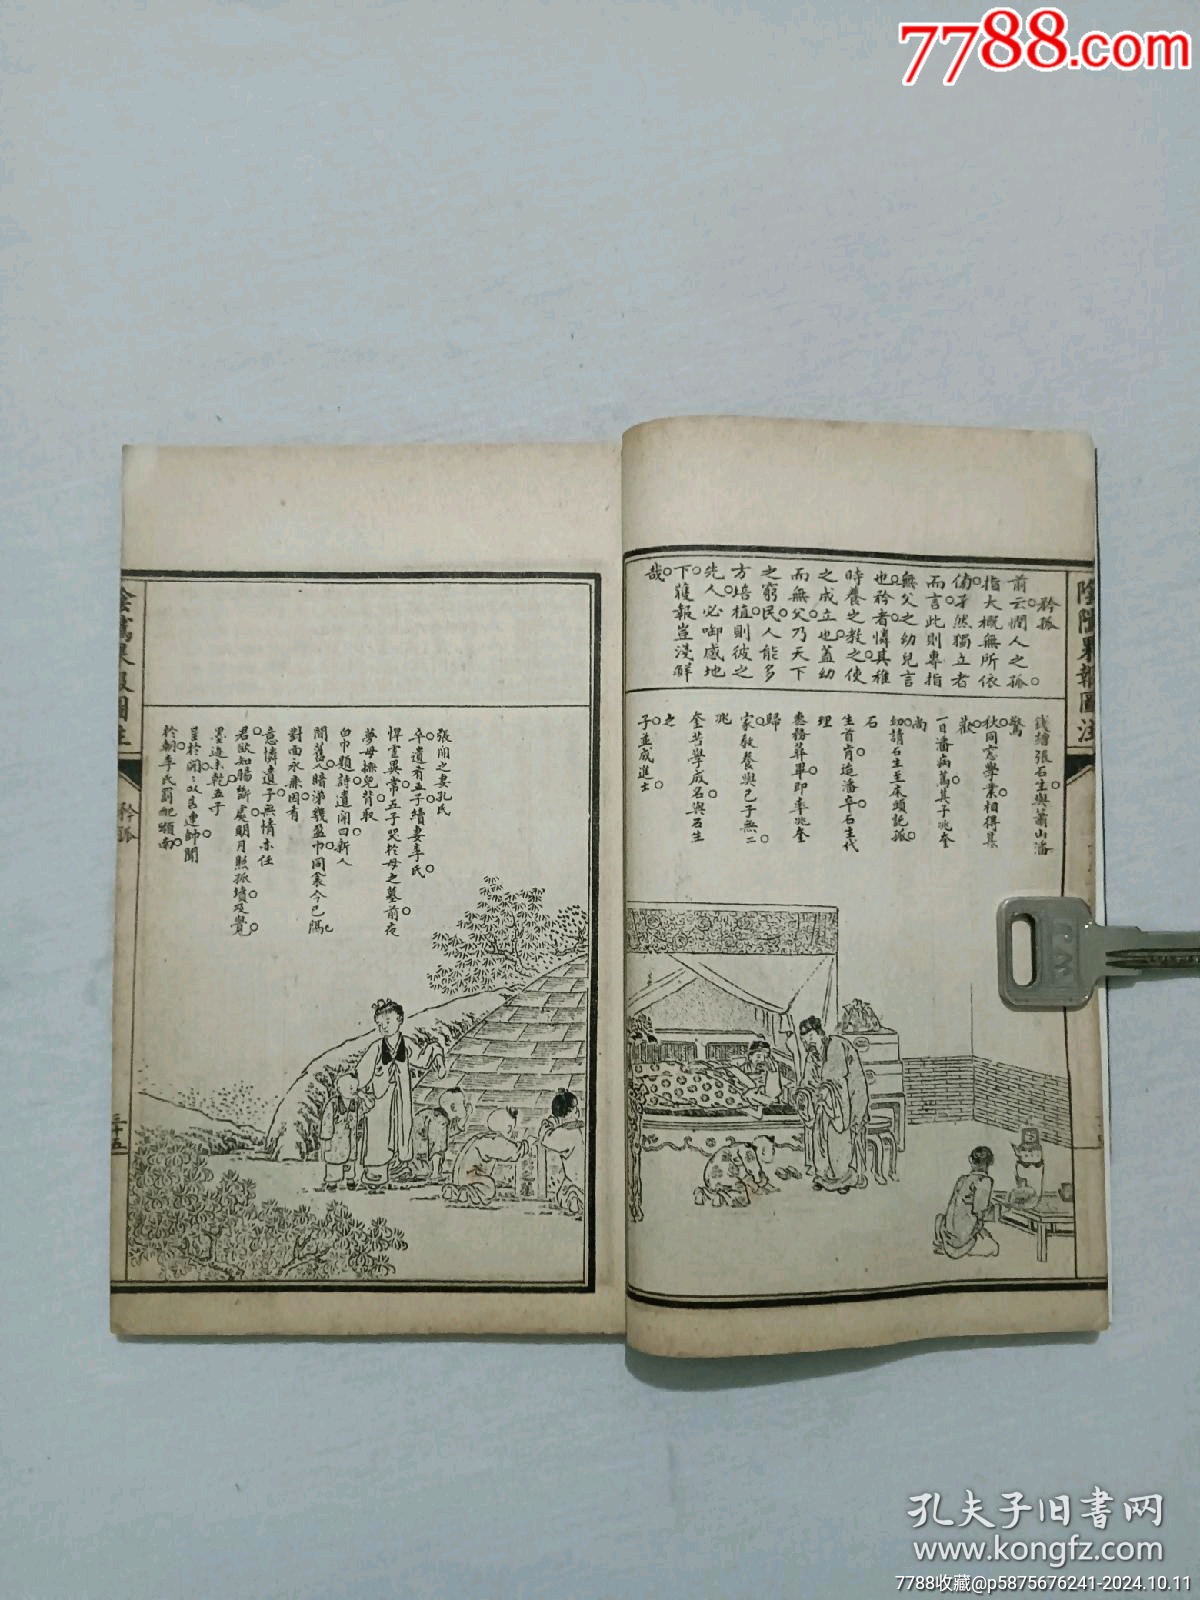 7788.com
陰隲果報圖注
矜孤
前云憫人之孤
指大概無所依
倚孑然獨立者
而言此則專指
無父之幼兒言
也矜者憐其稚
時養之教之使
之成立也蓋幼
而無父乃天下
之窮民人能多
方培植則彼之
先人必啣感地
下獲報豈淺鮮
哉
錢塘張石生與蕭山潘
秋同窓學業相得甚
歡
一日潘病篤其子兆奎
尚
幼請石生至床頭託孤
石
生首肯迨潘卒石生代
理
喪務葬畢即率兆奎
歸
家教養與己子無二
兆
奎苦學成名與石生
之
子並成進士
張閑之妻孔氏
卒遺有五子續妻李氏
悍虐異常五子哭於母之墓前夜
夢母撫兒背取
白巾題詩遺閑曰新人
間舊人暗涕幾盈巾同衾今已隔
對面永無因有
意憐遺子無情亦任
君欲知腸斷處明月照孤墳及覺
墨迹未乾五子
呈於閑閑以告連帥聞
於朝李氏罰配嶺南
陰隲果報圖注
矜孤
三十五
孔夫子旧书网
www.kongfz.com
7788收藏@p5875676241-2024.10.11